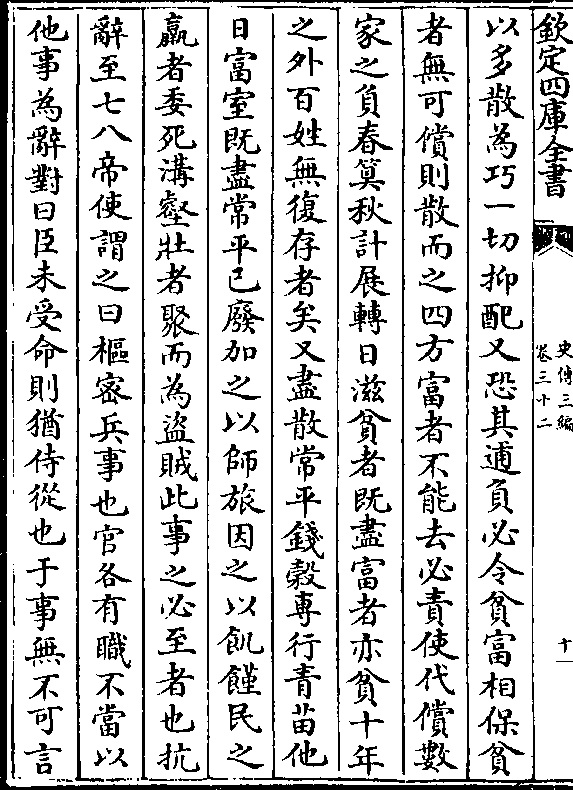 欽定四庫全書
史傳三編
卷三十二
十一
以多散為巧一切抑配又恐其逋負必令貧富相保貧
者無可償則散而之四方富者不能去必責使代償數
家之負春算秋計展轉日滋貧者既盡富者亦貧十年
之外百姓無復存者矣又盡散常平錢榖專行青苗他
日富室既盡常平已廢加之以師旅因之以飢饉民之
羸者委死溝壑壯者聚而為盜賊此事之必至者也抗
辭至七八帝使謂之曰樞密兵事也官各有職不當以
他事為辭對曰臣未受命則猶侍從也于事無不可言